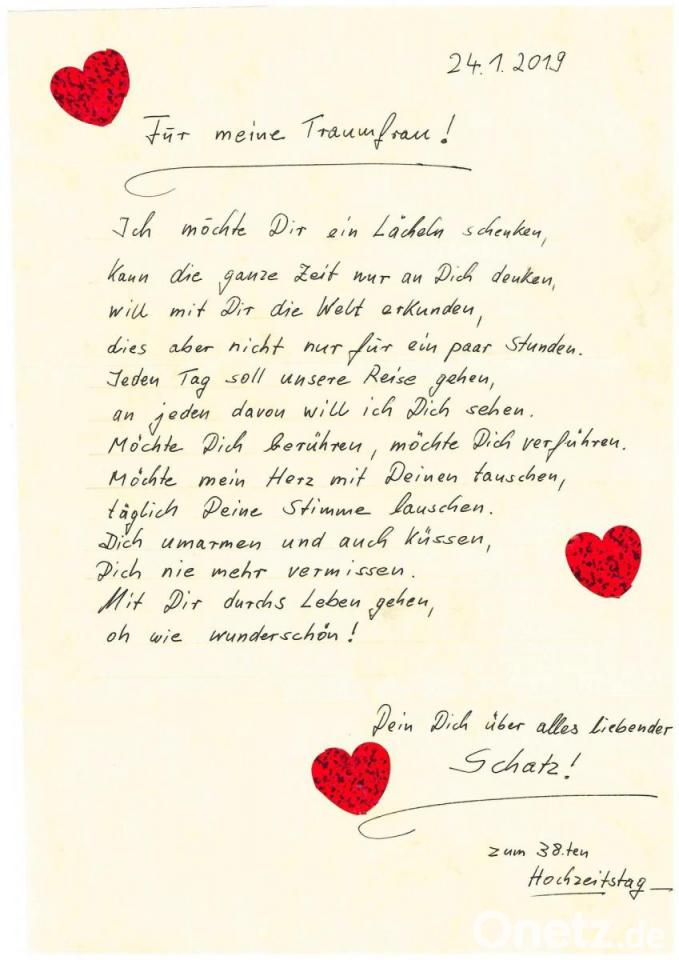 24.1.2019
Für meine Traumfrau!
Ich möchte Dir ein Lächeln schenken,
kann die ganze Zeit nur an Dich denken,
will mit Dir die Welt erkunden,
dies aber nicht nur für ein paar Stunden.
Jeden Tag soll unsere Reise gehen,
an jeden davon will ich Dich sehen.
Möchte Dich berühren, möchte Dich verführen.
Möchte mein Herz mit Deinen tauschen,
täglich Deine Stimme lauschen.
Dich umarmen und auch küssen,
Dich nie mehr vermissen.
Mit Dir durchs Leben gehen,
oh wie wunderschön!
Dein Dich über alles liebender
Schatz!
zum 38.ten
Hochzeitstag
Onetz.de